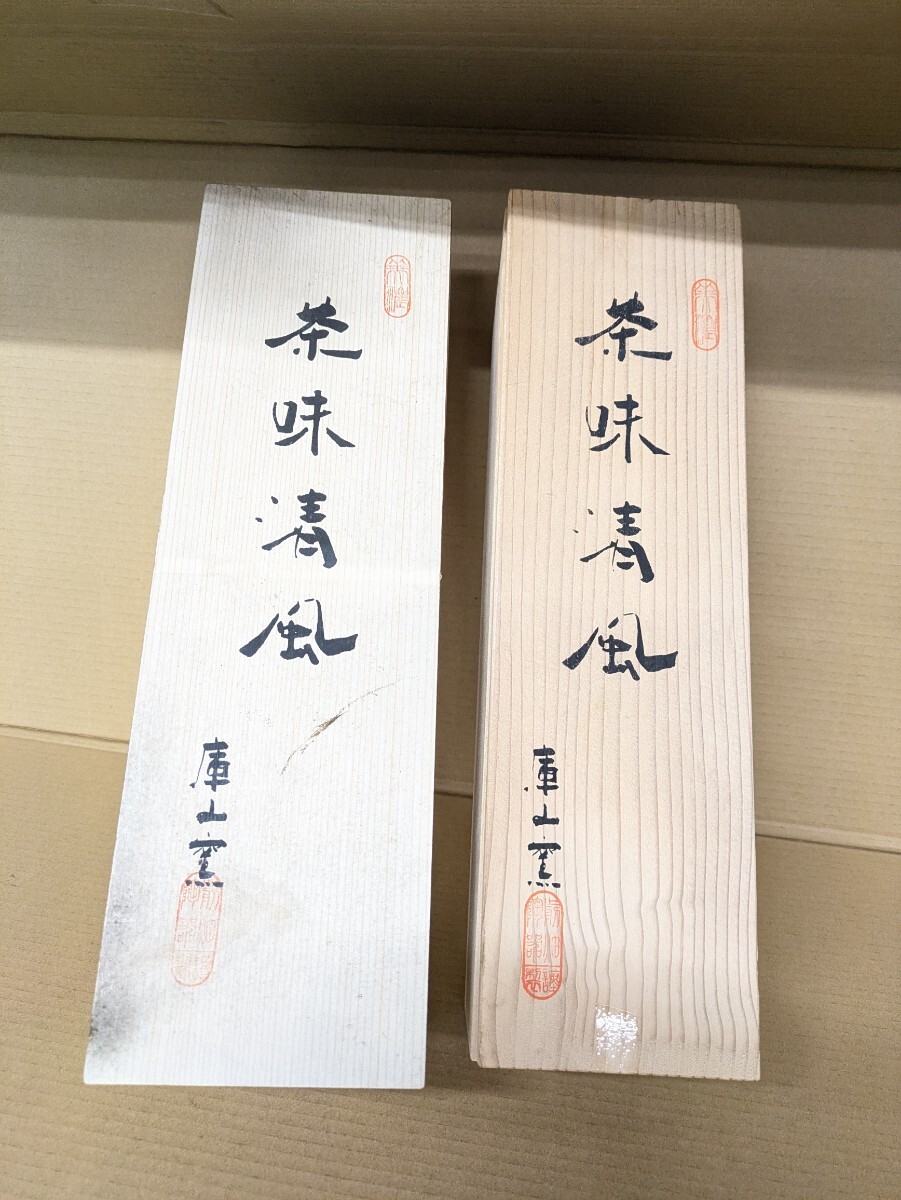 茶味清風
庫山窯
茶味清風
庫山窯